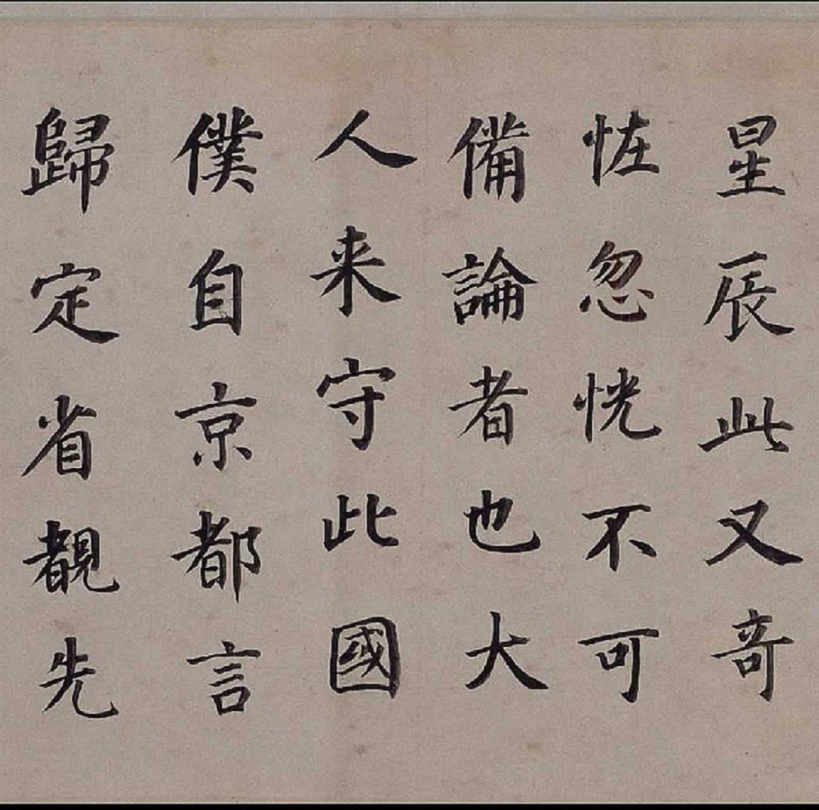 星辰此又奇
恠忽恍不可
備論者也大
人来守此國
僕自京都言
歸定省覩先